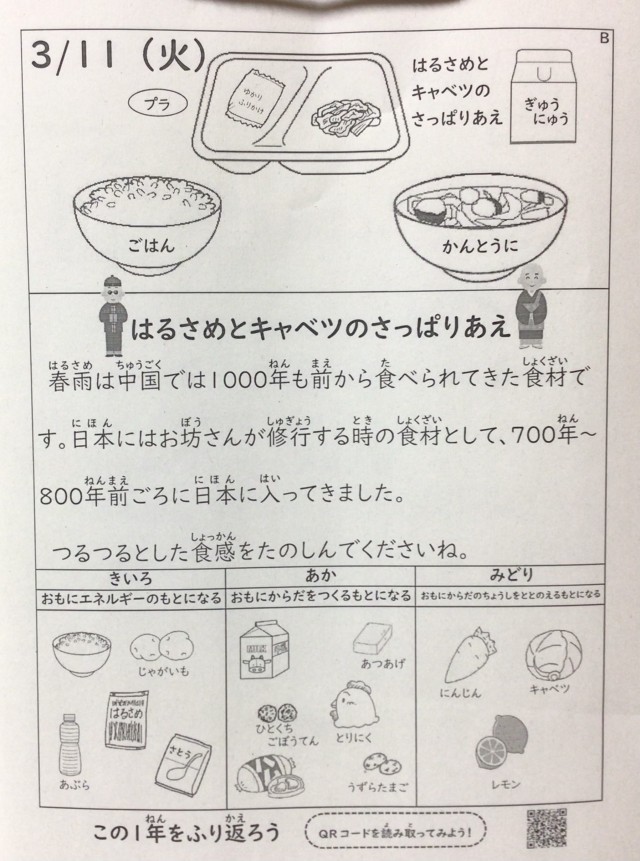 B
3/11（火）
プラ
ゆかり
ふりかけ
はるさめと
キャベツの
さっぱりあえ
ぎゅう
にゅう
ごはん
かんとうに
はるさめとキャベツのさっぱりあえ
はるさめ ちゅうごく ねん まえ た しょくざい
春雨は中国では1000年も前から食べられてきた食材で
にほん ぼう しゅぎょう とき しょくざい ねん
す。日本にはお坊さんが修行する時の食材として、700年～
ねんまえ にほん はい
800年前ごろに日本に入ってきました。
しょっかん
つるつるとした食感をたのしんでくださいね。
きいろ
おもにエネルギーのもとになる
じゃがいも
はるさめ
さとう
あぶら
あか
おもにからだをつくるもとになる
MILK
あつあげ
ひとくち
ごぼうてん
とりにく
うずらたまご
みどり
おもにからだのちょうしをととのえるもとになる
にんじん
キャベツ
レモン
ねん かえ
この1年をふり返ろう
よ と
QRコードを読み取ってみよう!